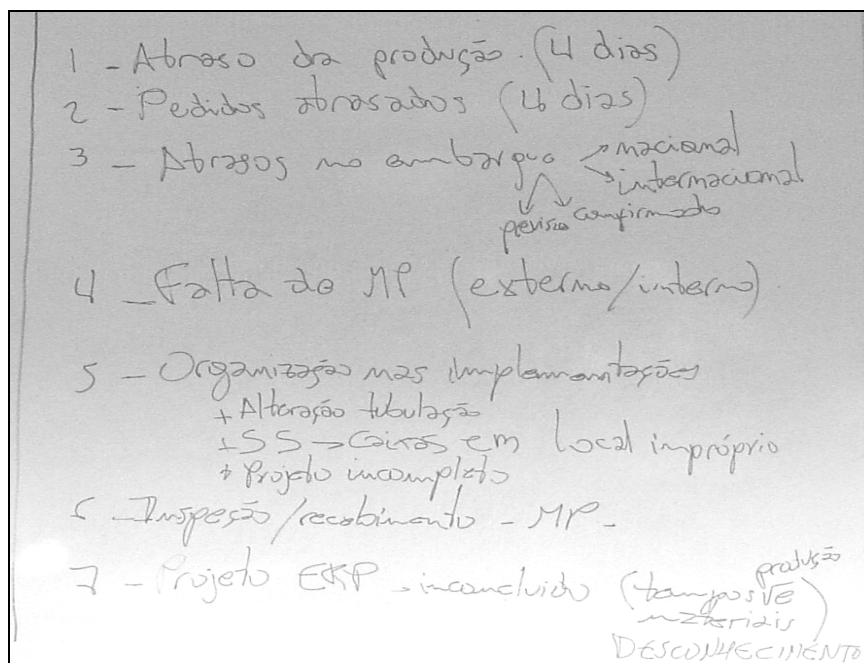 1 - Atraso da produção. (4 dias)
2 - Pedidos atrasados (4 dias)
3 - Atrasos no embarque → nacional
→ internacional
previsão confirmado
4 - Falta de MP (externo/interno)
5 - Organização nas implementações
+ Alteração tubulação
+ 5S → Caixas em local impróprio
+ Projeto incompleto
6 - Inspeção/recebimento - MP -
7 - Projeto EKP - inconcluido (tempos de produção
materiais)
DESCONHECIMENTO